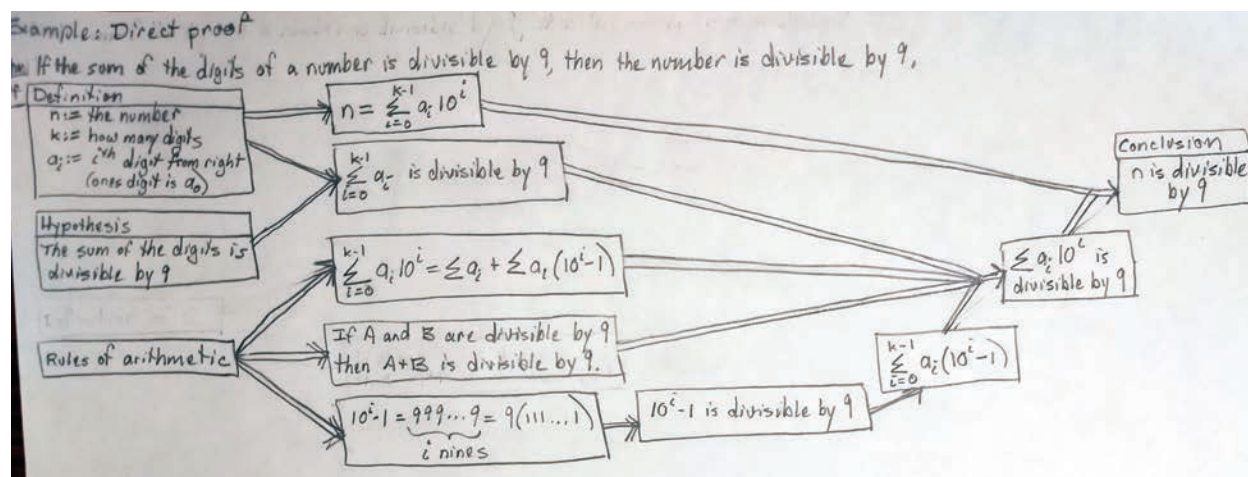 Example: Direct proof
If the sum of the digits of a number is divisible by 9, then the number is divisible by 9.
Definition
n := the number
k := how many digits
aᵢ := iᵗʰ digit from right
(ones digit is a₀)
Hypothesis
The sum of the digits is
divisible by 9
Rules of arithmetic
n = ∑_{i=0}^{k-1} aᵢ 10ⁱ
∑_{i=0}^{k-1} aᵢ is divisible by 9
∑_{i=0}^{k-1} aᵢ 10ⁱ = ∑ aᵢ + ∑ aᵢ (10ⁱ-1)
If A and B are divisible by 9
then A+B is divisible by 9.
10ⁱ-1 = 999...9 = 9(111...1)
i nines
10ⁱ-1 is divisible by 9
∑_{i=0}^{k-1} aᵢ (10ⁱ-1)
∑ aᵢ 10ⁱ is
divisible by 9
Conclusion
n is divisible
by 9